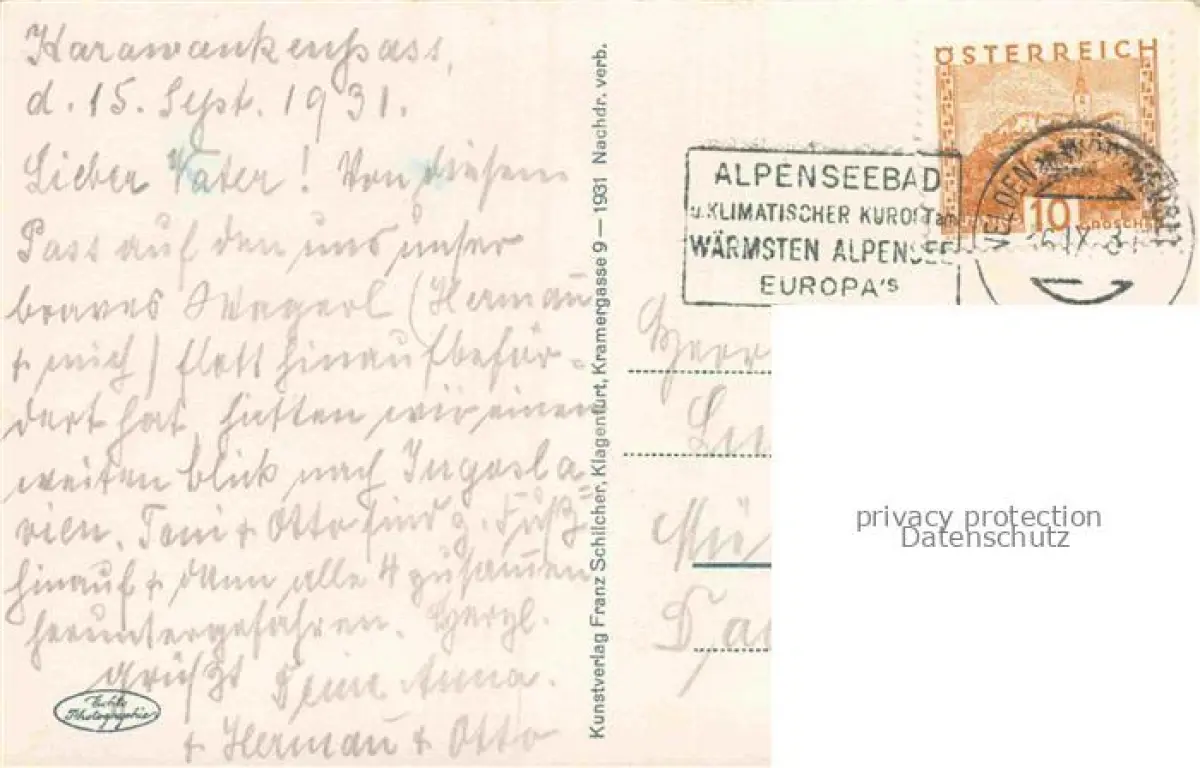 Karawankenpass,
d. 15. Sept. 1931.
Lieber Vater! Von diesem
Pass auf den uns unser
braves Wagerl (Herman
+ mich) flott hinaufbeför-
dert hat hatten wir einen
weiten Blick nach Jugosla-
vien. Toni + Otto sind z. Fuß
hinauf + dann alle 4 zusammen
heruntergefahren. Herzl.
Grüße Deine Anna.
+ Herman + Otto
Echte
Photographie
Kunstverlag Franz Schilcher, Klagenfurt, Kramergasse 9 — 1931 Nachdr. verb.
ÖSTERREICH
10 GROSCHEN
ALPENSEEBAD
u. KLIMATISCHER KURORT am
WÄRMSTEN ALPENSEE
EUROPA's
VELDEN AM WÖRTHERSEE
Herr
privacy protection
Datenschutz